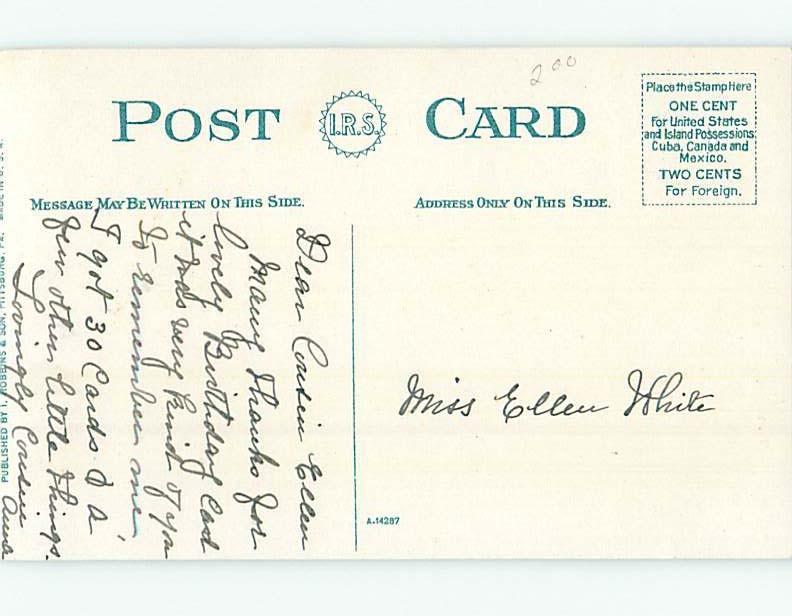 2 00
POST I.R.S. CARD
Place the Stamp Here
ONE CENT
For United States
and Island Possessions
Cuba, Canada and
Mexico.
TWO CENTS
For Foreign.
MESSAGE MAY BE WRITTEN ON THIS SIDE.
ADDRESS ONLY ON THIS SIDE.
Dear Cousin Ellen
Many thanks for
lovely Birthday Cad
it was very kind of you
to remember me,
I got 30 Cards & a
few other little things.
Lovingly Cousin
Anna
Miss Ellen White
A-14287
PUBLISHED BY I. ROBBINS & SON, PITTSBURG, PA. MADE IN U. S. A.